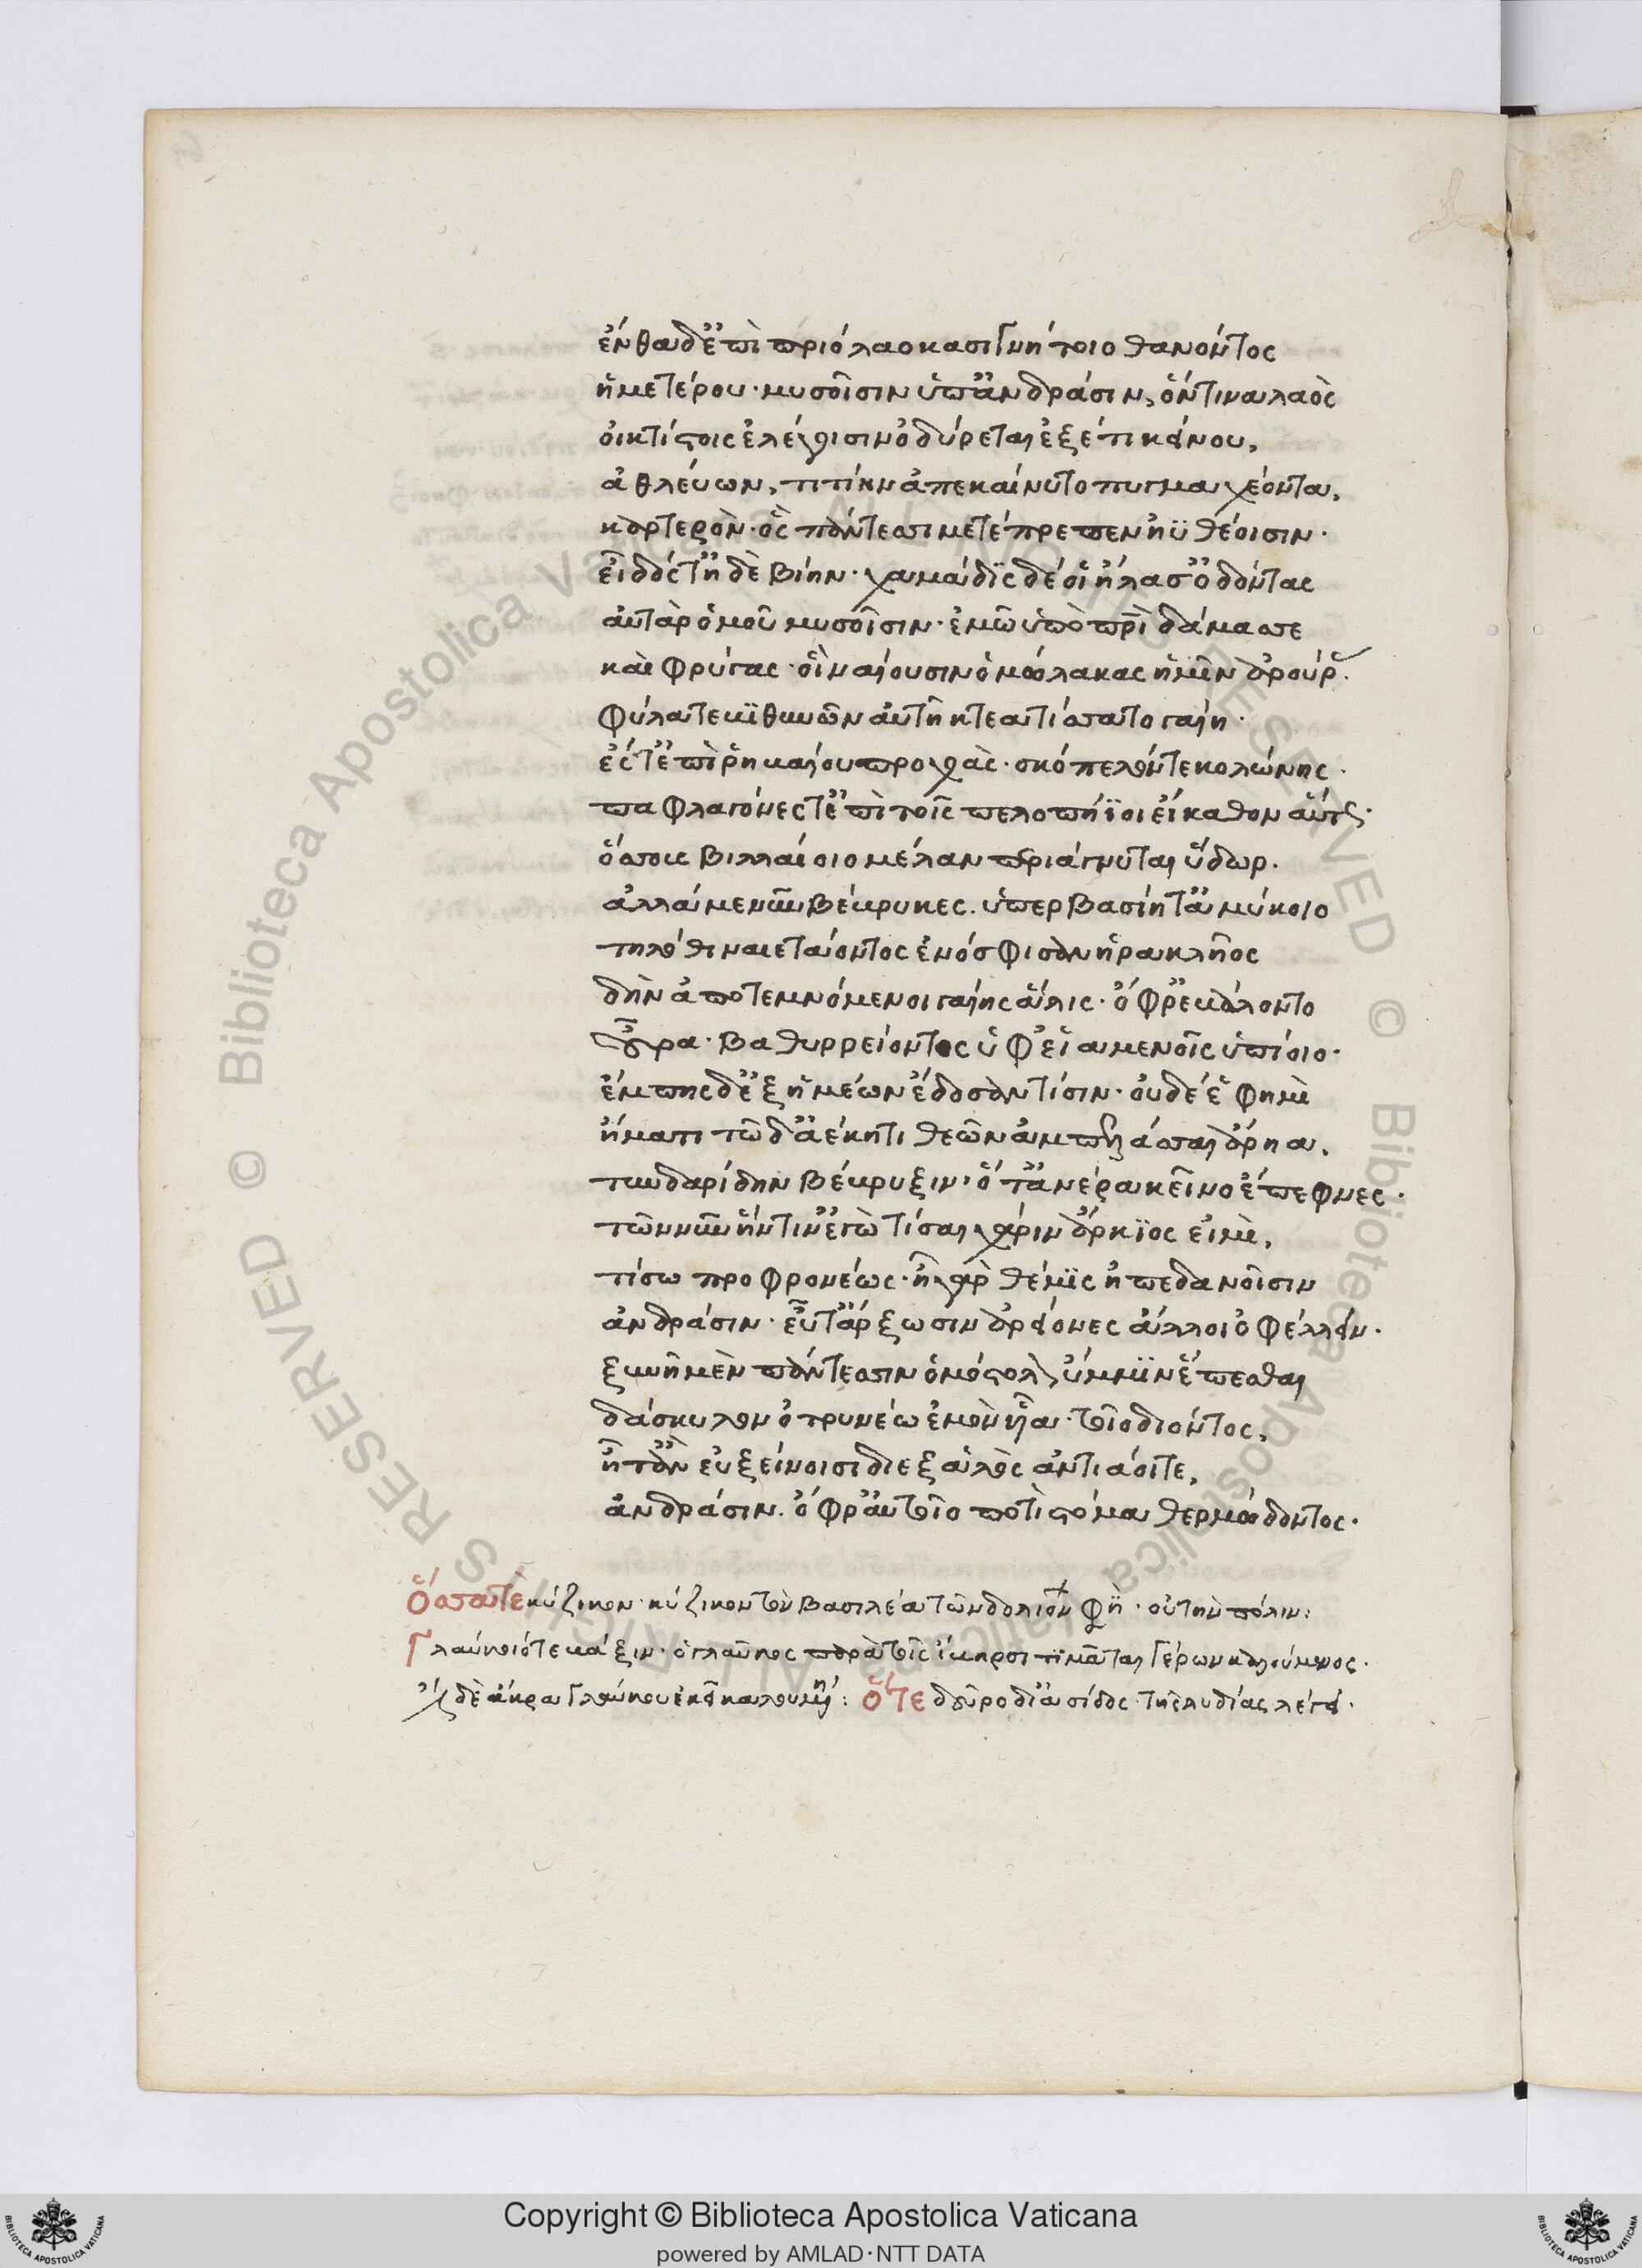 ἔνθα δ' ἐπὶ πριόλαο κασιγνήτοιο θανόντος
ἡμετέρου· μυσοῖσιν ὑπ' ἀνδράσιν, ὅντινα λαὸς
οἰκτίστοις ἐλέγοισιν ὀδύρεται ἐξέτι κείνου,
ἀθλεύων, τιτίην ἀπεκαίνυτο πυγμαχέοντα,
καρτερὸν· ὃς πάντεσσι μετέπρεπεν ἠϊθέοισιν·
εἶδός τ' ἠδὲ βίην· χαμάδϊς δέ οἱ ἤλασ' ὀδόντας
αὐτὰρ ὁμοῦ μυσοῖσιν· ἐμῶ ὑπὸ πρὶ δάμασσε
καὶ φρύγας· οἳ ναίουσιν ὁμώλακας ἡμῖν ἀρούρας.
φύλατε βϊθυνῶν αὐτῆ κτεατίσσατο γαίη·
ἔς τ' ἐπὶ ῥηβαίου προχοὰς· σκόπελόν τε κολώνης·
παφλαγόνες τ' ἐπὶ τοῖς πελοπήϊοι εἴκαθον αὔτως·
ὅσσους βιλλαίοιο μέλαν περιάγνυται ὕδωρ.
ἀλλά με νῦν βέβρυκες. ὑπερβασίη τ' ἀμύκοιο
τηλόθι ναιετάοντος ἐνόσφισαν ἡρακλῆος
δὴν ἀποτεμνόμενοι γαίης ἅλις· ὄφρ' ἐβάλοντο
οὖρα· βαθυρρείοντος ὑφ' εἱαμενοῖς ὑπίοιο·
ἔμπης δ' ἐξ ἡμέων ἔδοσαν τίσιν· οὐδέ ἑ φημὶ
ἤματι τῶδ' ἀέκητι θεῶν ἀμπλῆξαι ἄρηα,
τυνδαρίδην βέβρυξιν· ὅτ' ἀνέρα κεῖνον ἔπεφνες·
τῶν νῦν ἥντιν' ἐγὼ τίσαι χάριν ἄρκϊος εἰμὶ,
τίσω προφρονέως· ἣ γὰρ θέμϊς ἠπεδανοῖσιν
ἀνδράσιν· εὖτ' ἄρξωσιν ἀρείονες ἄλλοι ὀφέλλειν·
ξυνῆ μὲν πάντεσσιν ὁμόστολον ὔμμϊν ἕπεσθαι
δάσκυλον ὀτρυνέω ἐμὸν ἷῆα· τοῖο δ' ἰόντος,
ἦ τ' ἂν εὐξείνοισι διεξ ἁλὸς ἀντιάοιτε,
ἀνδράσιν. ὄφρ' αὐτοῖο ποτὶ στόμα θερμώδοντος·
Ὅσσατὲ κύζικον· κύζικον τὸν βασιλέα τῶν δολιόν φη· οὐ τὴν πόλιν:
Γλαύκοιό τε βάξιν· ὁ γλαῦκος παρὰ τοῖς ἴβηρσι τϊμᾶται γέρων καλούμενος·
ἔστι δὲ ἄκρα γλαύκου ἐκεῖ καλουμένη: Ὅτε δεῦρο δι' ἀσίδος· τῆς λυδίας λέγει·
Copyright © Biblioteca Apostolica Vaticana
powered by AMLAD·NTT DATA